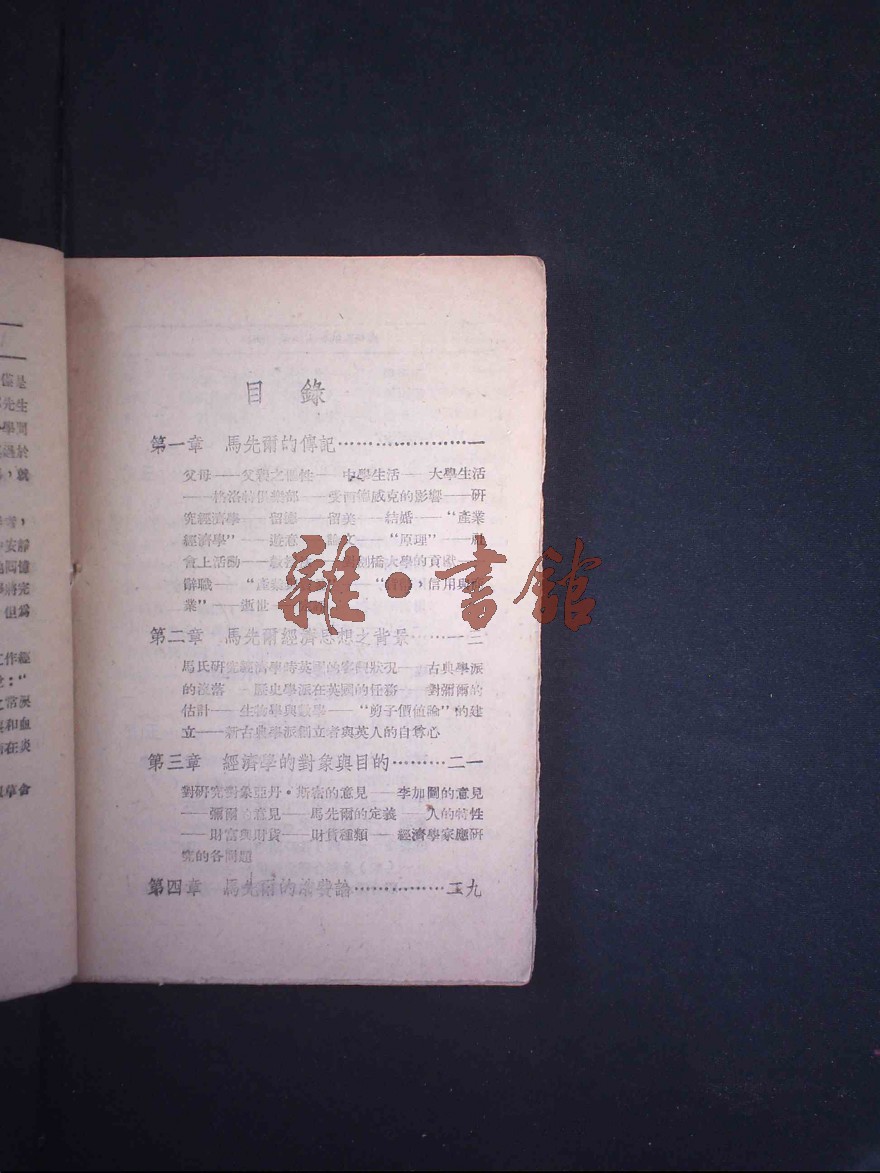 目錄
第一章 馬先爾的傳記……………………一
父母——父親之個性——中學生活——大學生活
——格洛特俱樂部——受西德威克的影響——研
究經濟學——留德——留美——結婚——“產業
經濟學”——遊意——論文——“原理”——
會上活動——劍橋大學的貢獻——
辭職——信用與
業”——逝世
第二章 馬先爾經濟思想之背景……一三
馬氏研究經濟學時英國的客觀狀況——古典學派
的沒落——歷史學派在英國的任務——對彌爾的
估計——生物學與數學——“剪子價值論”的建
立——新古典學派創立者與英人的自尊心
第三章 經濟學的對象與目的………二一
對研究對象亞丹・斯密的意見——李加圖的意見
——彌爾的意見——馬先爾的定義——人的特性
——財富與財貨——財貨種類——經濟學家應研
究的各問題
第四章 馬先爾的………………二九
雜・書館
僅是
先生
學問
過於
，就
安靜
但爲
工作經
常淚
和血
在炎
草會